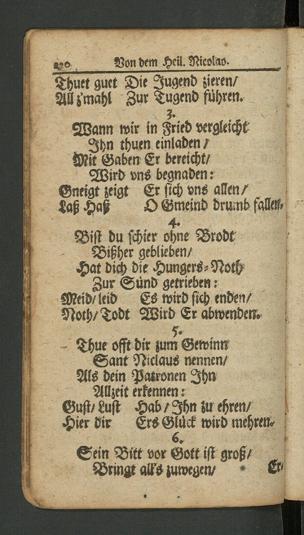 270 Von dem Heil. Nicolas.
Thuet guet Die Jugend zieren/
All z'mahl Zur Tugend führen.
3.
Wann wir in Fried vergleicht
Ihn thuen einladen/
Mit Gaben Er bereicht/
Wird vns begnaden:
Gneigt zeigt Er sich vns allen/
Laß Haß O Gmeind drumb fallen.
4.
Bist du schier ohne Brodt
Bißher geblieben/
Hat dich die Hungers-Noth
Zur Sünd getrieben:
Meid/leid Es wird sich enden/
Noth/Todt Wird Er abwenden.
5.
Thue offt dir zum Gewinn
Sant Niclaus nennen/
Als dein Patronen Ihn
Allzeit erkennen:
Gust/Lust Hab/Ihn zu ehren/
Hier dir Ers Glück wird mehren.
6.
Sein Bitt vor Gott ist groß/
Bringt all's zuwegen/
Er